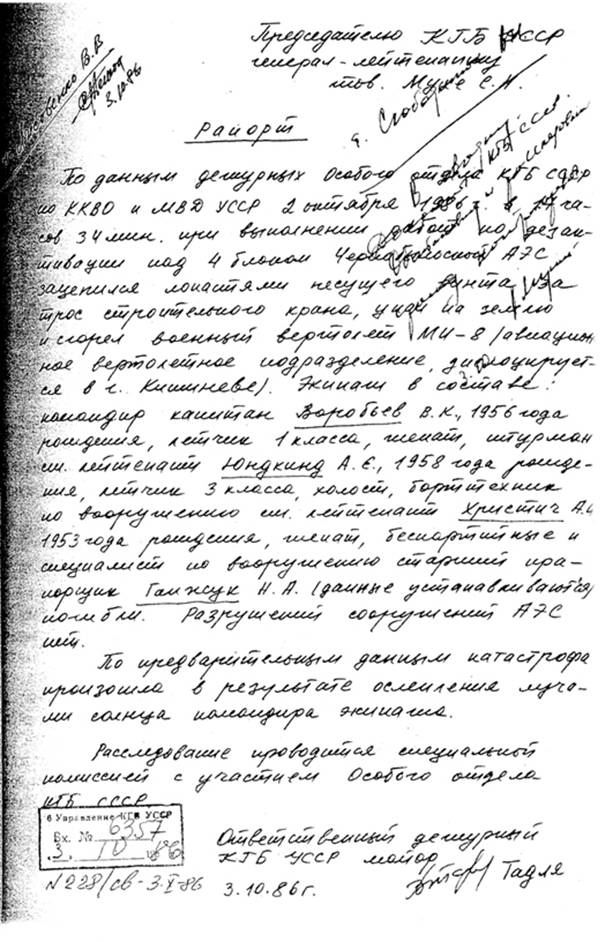 В.В
3.10.86
Председателю КГБ УССР
генерал-лейтенанту
тов. Мухе С.Н.
Рапорт
По данным дежурных Особого отдела КГБ СССР
по ККВО и МВД УССР 2 октября 1986 г. в ча-
сов 34 мин. при выполнении работ по дезак-
тивации над 4 блоком Чернобыльской АЭС
зацепился лопастями несущего винта за
трос строительного крана, упал на землю
и сгорел военный вертолет МИ-8 /авиацион
ное вертолетное подразделение, дислоцирует-
ся в г. Кишиневе). Экипаж в составе:
командир капитан Воробьев В.К., 1956 года
рождения, летчик 1 класса, женат, штурман
ст. лейтенант Юндкинд А.Е., 1958 года рожде-
ния, летчик 3 класса, холост, борттехник
по вооружению ст. лейтенант Христич А.И
1953 года рождения, женат, беспартийные и
специалист по вооружению старший пра-
порщик Ганжук Н.А. (данные устанавливаются)
погибли. Разрушений сооружений АЭС
нет.
По предварительным данным катастрофа
произошла в результате ослепления луча-
ми солнца командира экипажа.
Расследование проводится специальной
комиссией с участием Особого отдела
КГБ СССР.
6 Управление КГБ УССР
Вх. № 6357
3. 10 1986
N 228/св-3.X-86
Ответственный дежурный
КГБ УССР майор Гадля
3.10.86г.